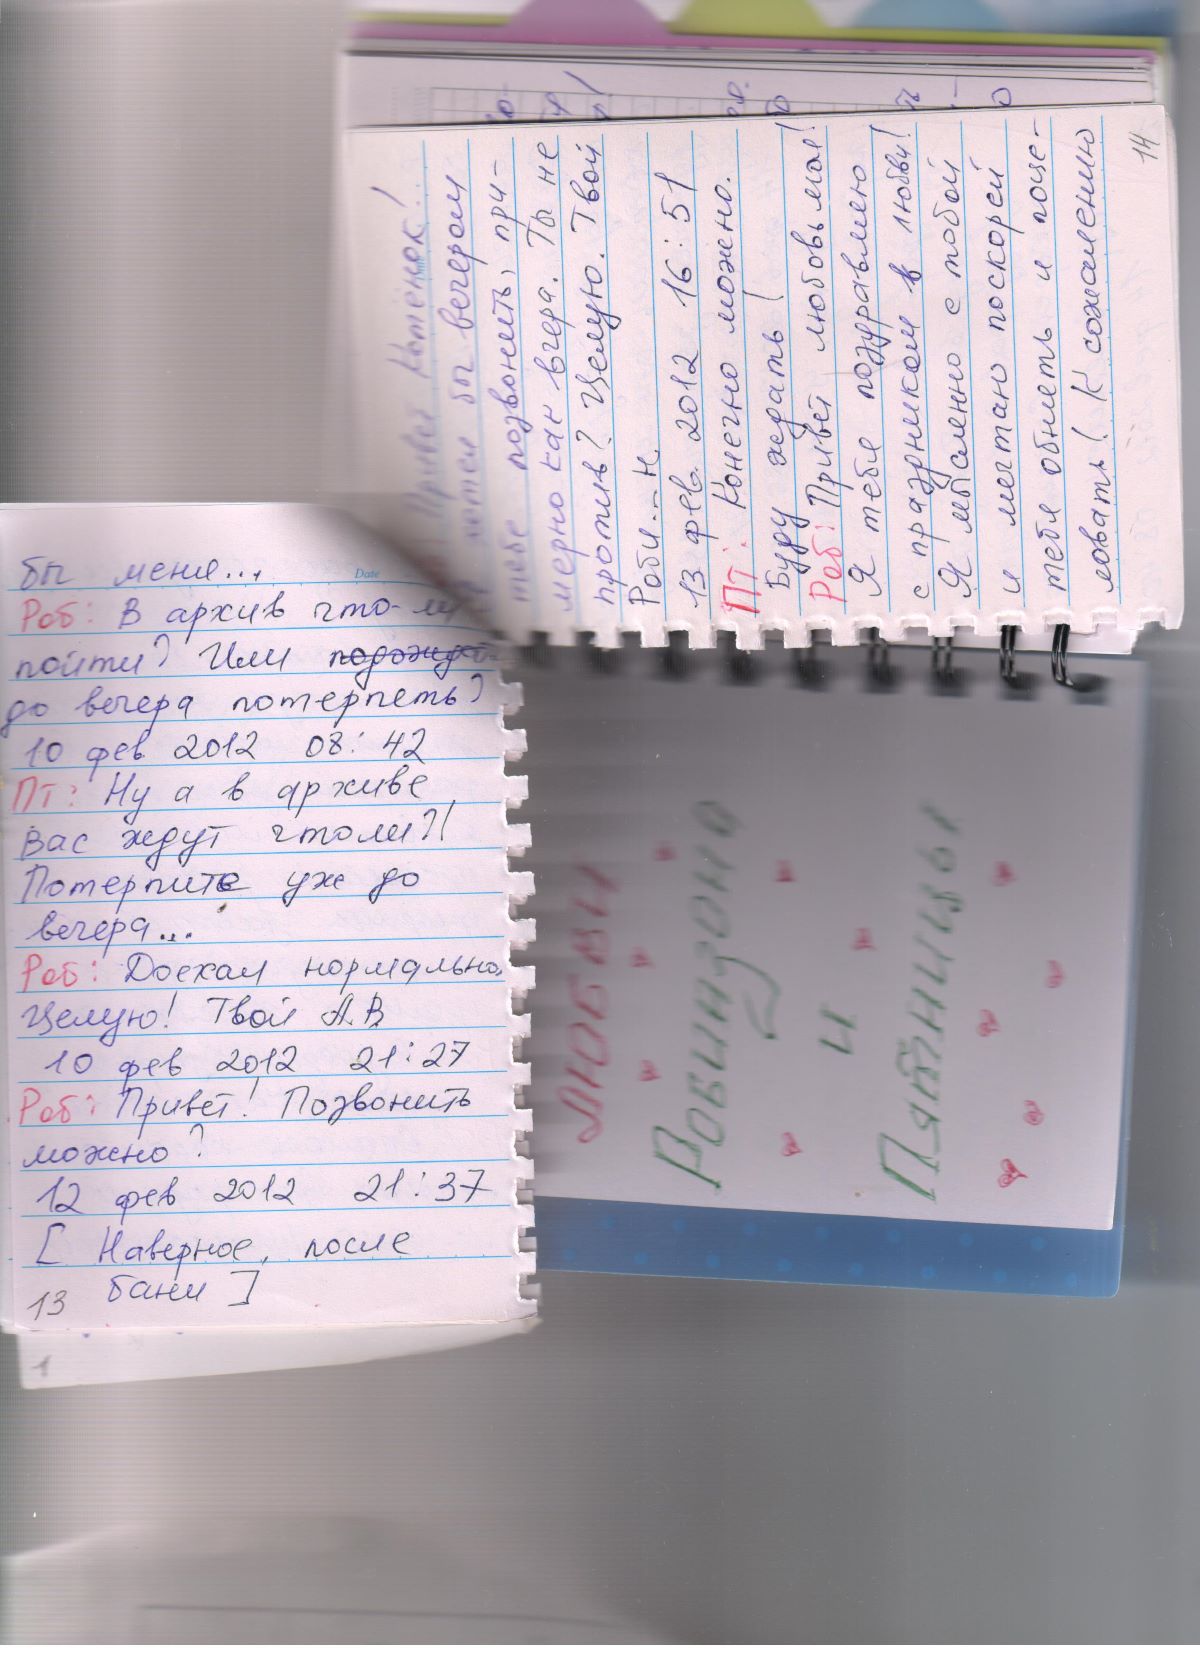 бы меня...
Date
Роб: В архив что-ли
пойти? Или подождать
до вечера потерпеть?
10 фев 2012 08:42
Пт: Ну а в архиве
Вас ждут чтоли?!
Потерпите уж до
вечера...
Роб: Доехал нормально.
Целую! Твой А.В.
10 фев 2012 21:27
Роб: Привет! Позвонить
можно?
12 фев 2012 21:37
[ Наверное, после
бани ]
13
1
Привет Котенок!
хотел бы вечером
тебе позвонить, при-
мерно как вчера. Ты не
против? Целую. Твой
Роби...Н
13 фев. 2012 16:51
Пт: Конечно можно.
Буду ждать!
Роб: Привет любовь моя!
Я тебя поздравляю
с праздником в любви!
Я мысленно с тобой
и мечтаю поскорей
тебя обнять и поце-
ловать! К сожалению
14
ЛЮБВИ
Робинзона
и
Пятницы